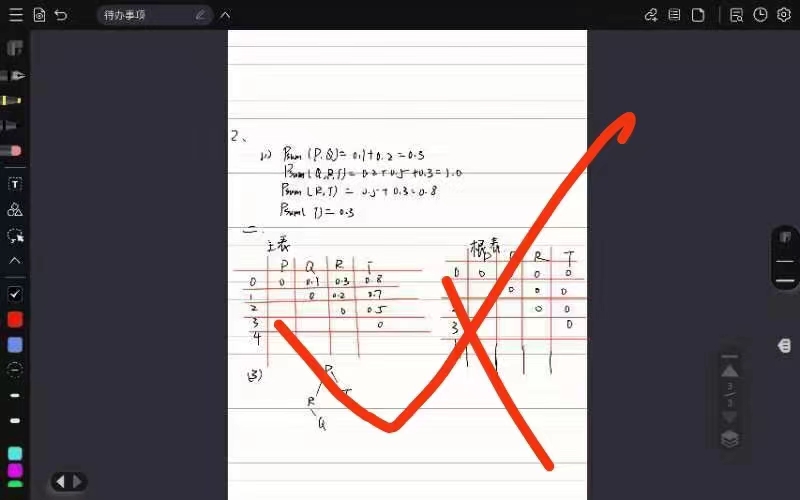 待办事项
2、
(1) Psum(P,Q)=0.1+0.2=0.3
Psum(Q,R,T)=0.2+0.5+0.3=1.0
Psum(R,T)=0.5+0.3=0.8
Psum(T)=0.3
二、
主表 根表
P Q R T
0 0 0.1 0.3 0.8
1 0 0.2 0.7
2 0 0.5
3 0
4
P R T
0 0 0 0
0 0 0
0 0
3 0
(3)
P
R T
Q
3/3